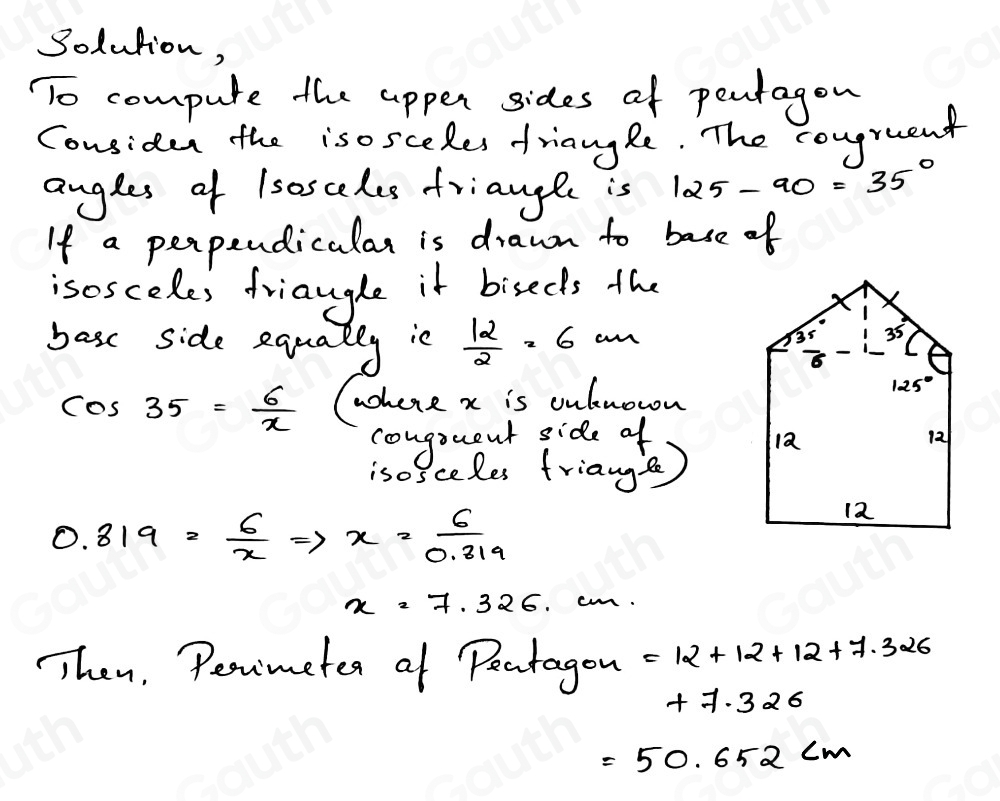 Solution,
To compute the upper sides of pentagon
Consider the isosceles triangle. The congruent
angles of Isosceles triangle is 125 - 90 = 35°
If a perpendicular is drawn to base of
isosceles triangle it bisects the
base side equally ie 12/2 = 6 cm
Cos 35 = 6/x (where x is unknown
congruent side of
isosceles triangle)
0.819 = 6/x => x = 6/0.819
x = 7.326. cm.
Then, Perimeter of Pentagon = 12 + 12 + 12 + 7.326
+ 7.326
= 50.652 cm
35°
35°
6
125°
12
12
12
Gauth